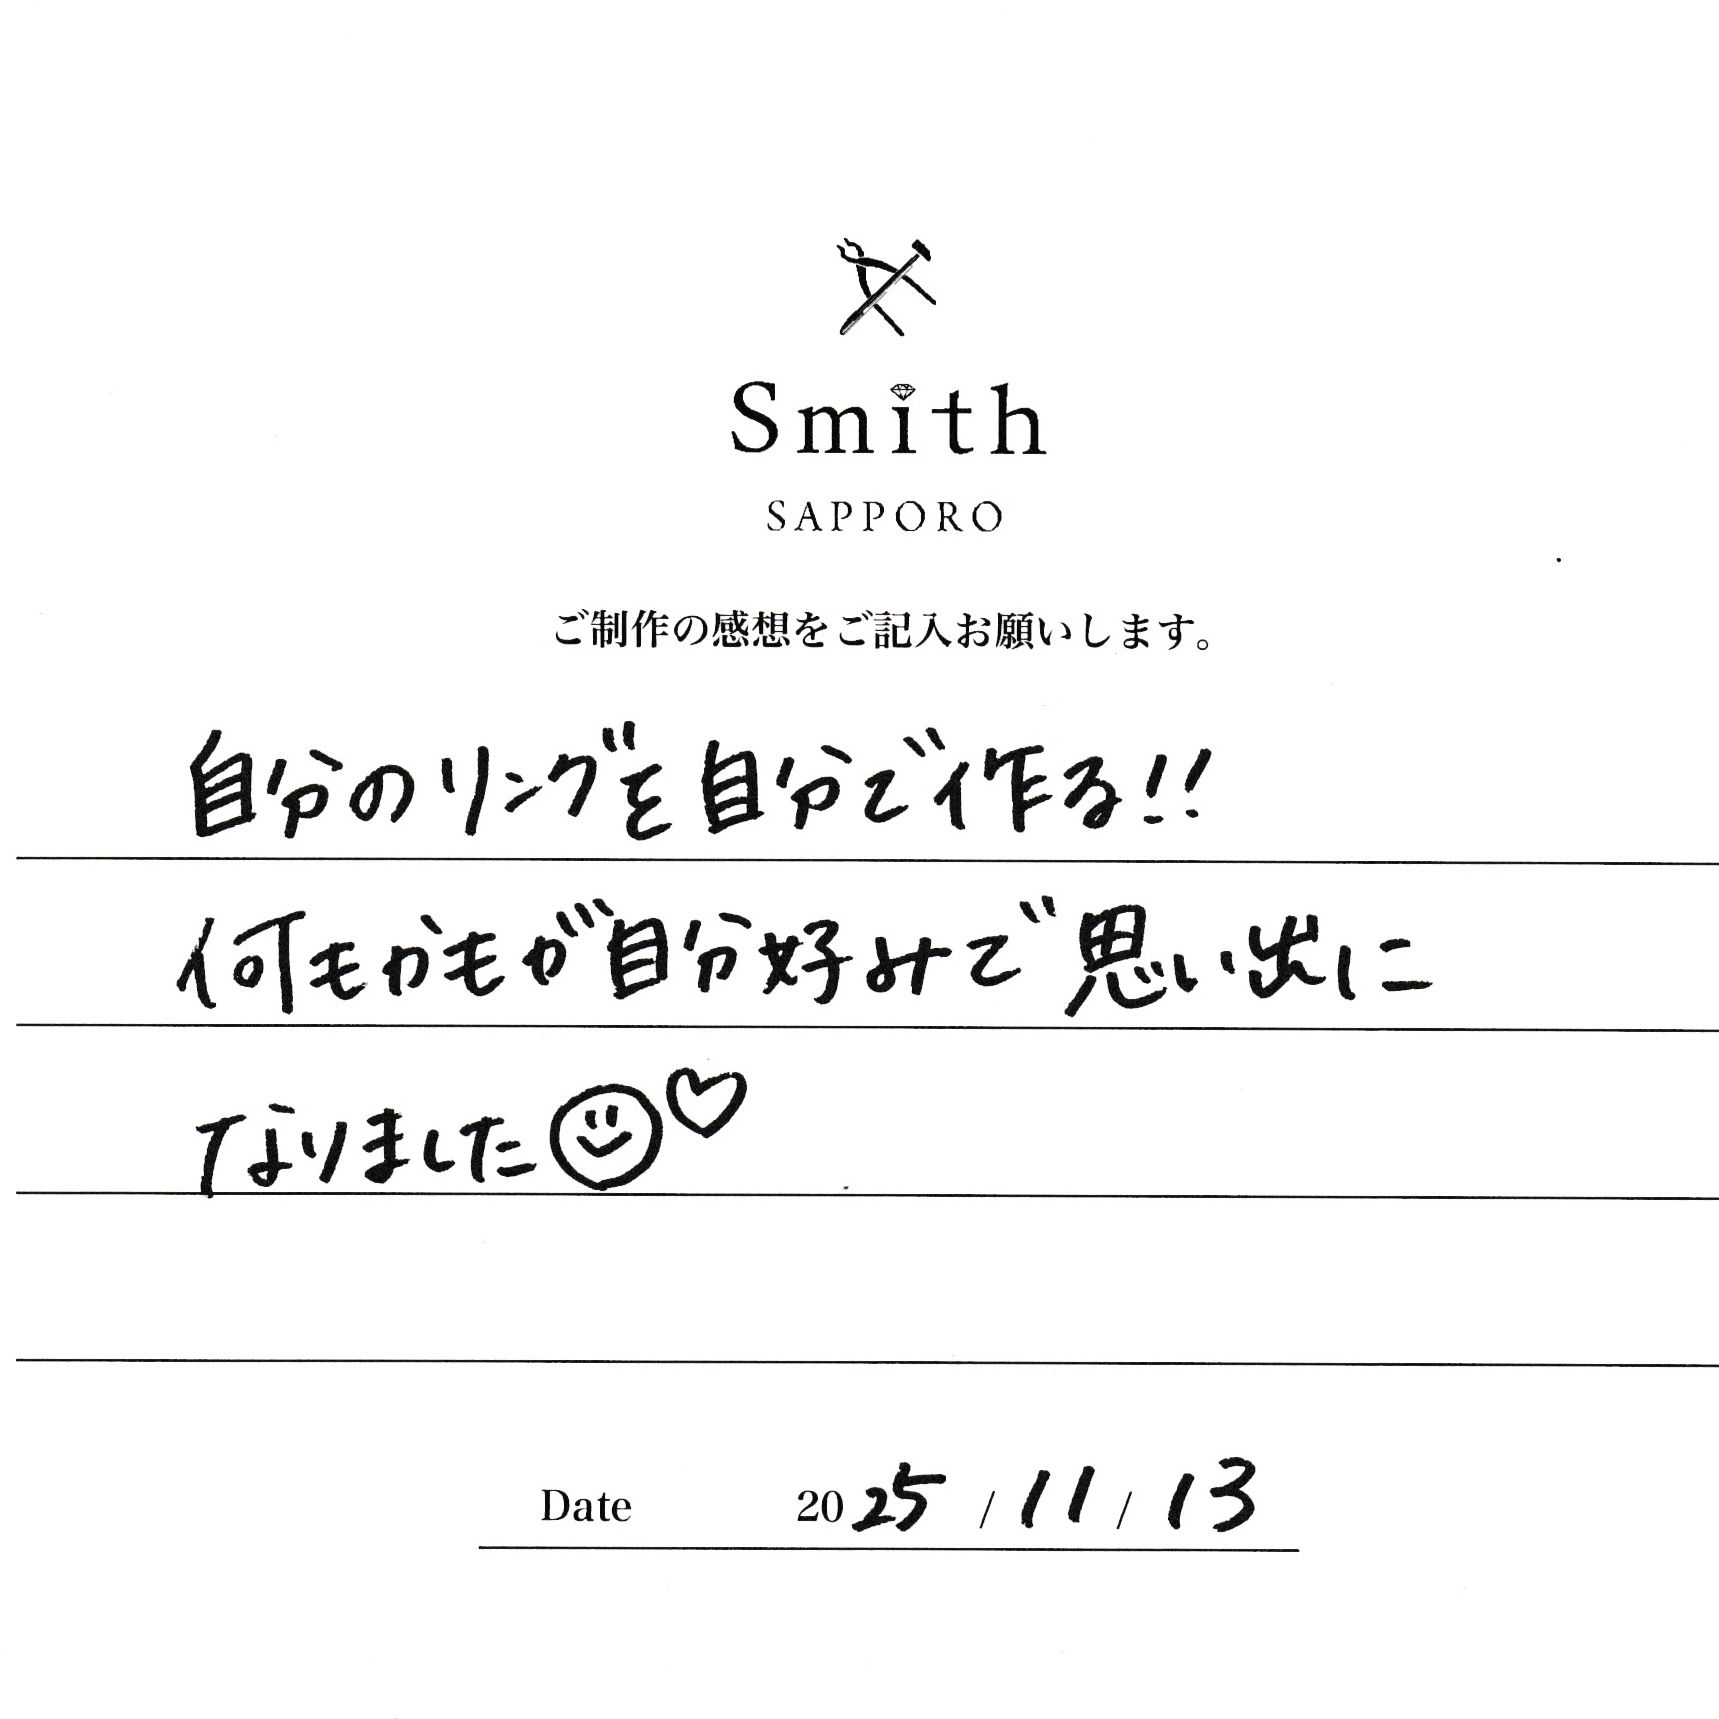 Smith
SAPPORO
ご制作の感想をご記入お願いします。
自分のリングを自分で作る!!
何もかもが自分好みで思い出に
なりました
Date 2025 / 11 / 13